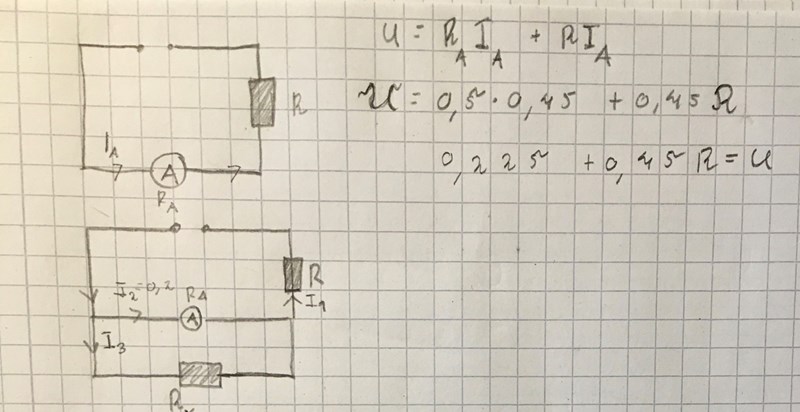 U = R_A I_A + R I_A
R
U = 0,5 · 0,45 + 0,45 R
I_A
A
0,225 + 0,45 R = U
R_A
R
I_2 = 0,2
R_A
I_1
A
I_3